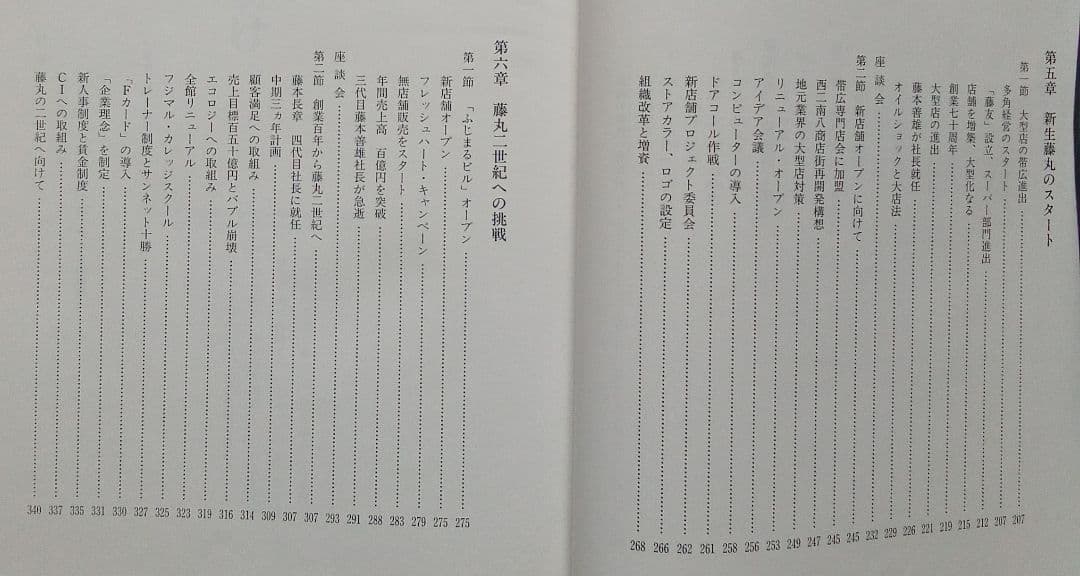 第五章　新生藤丸のスタート
第一節　大型店の帯広進出……207
多角経営のスタート……207
「藤友」設立、スーパー部門進出……212
店舗を増築、大型化なる……215
創業七十周年……219
大型店の進出……221
藤本善雄が社長就任……226
オイルショックと大店法……229
座談会……232
第二節　新店舗オープンに向けて……245
帯広専門店会に加盟……245
西二南八商店街再開発構想……247
地元業界の大型店対策……249
リニューアル・オープン……253
アイデア会議……256
コンピューターの導入……258
ドアコール作戦……261
新店舗プロジェクト委員会……262
ストアカラー、ロゴの設定……266
組織改革と増資……268
第六章　藤丸二世紀への挑戦
第一節　「ふじまるビル」オープン……275
新店舗オープン……275
フレッシュハート・キャンペーン……279
無店舗販売をスタート……283
年間売上高　百億円を突破……288
三代目藤本善雄社長が急逝……291
座談会……293
第二節　創業百年から藤丸二世紀へ……307
藤本長章　四代目社長に就任……307
中期三ヵ年計画……309
顧客満足への取組み……314
売上目標百五十億円とバブル崩壊……316
エコロジーへの取組み……319
全館リニューアル……323
フジマル・カレッジスクール……325
トレーナー制度とサンネット十勝……327
「Fカード」の導入……330
「企業理念」を制定……331
新人事制度と賃金制度……335
CIへの取組み……337
藤丸の二世紀へ向けて……340